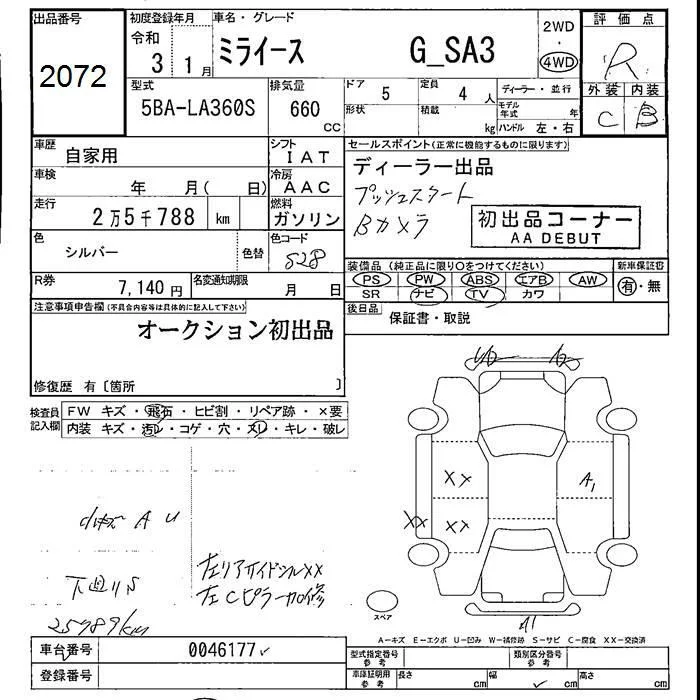 出品番号
2072
初度登録年月
令和
3 1月
車名・グレード
ミライース G_SA3
2WD
4WD
評価点
R
外装 内装
C B
型式
5BA-LA360S
排気量
660
CC
ドア 5
形状
定員 4 人
積載 kg
ディーラー・並行
モデル年式 年
ハンドル 左・右
車歴
自家用
シフト
IAT
車検
年 月( 日)
冷房
AAC
走行
2万5千788 km
燃料
ガソリン
色
シルバー
色替
色コード
S28
R券
7,140円
名変通知期限
月 日
セールスポイント(正常に機能するものに限ります)
ディーラー出品
プッシュスタート
Bカメラ
初出品コーナー
AA DEBUT
装備品(純正品に限り○をつけてください)
PS PW ABS エアB AW
SR ナビ TV カワ
新車保証書
有・無
後日品
保証書・取説
注意事項申告欄(不具合内容等は具体的に記入して下さい)
オークション初出品
修復歴 有〔箇所 〕
検査員記入欄
FW キズ・飛石・ヒビ割・リペア跡・×要
内装 キズ・汚レ・コゲ・穴・スレ・キレ・破レ
A U
下廻りS
25789km
左リアサイドシルXX
左Cピラー加修
XX
A1
XX XX
A1
スペア
A-キズ E-エクボ U-凹み W-補修跡 S-サビ C-腐食 XX-交換済
車台番号
0046177
登録番号
型式指定番号
参考
類別区分番号
参考
車庫証明用
参考
長さ cm
幅 cm
高さ cm